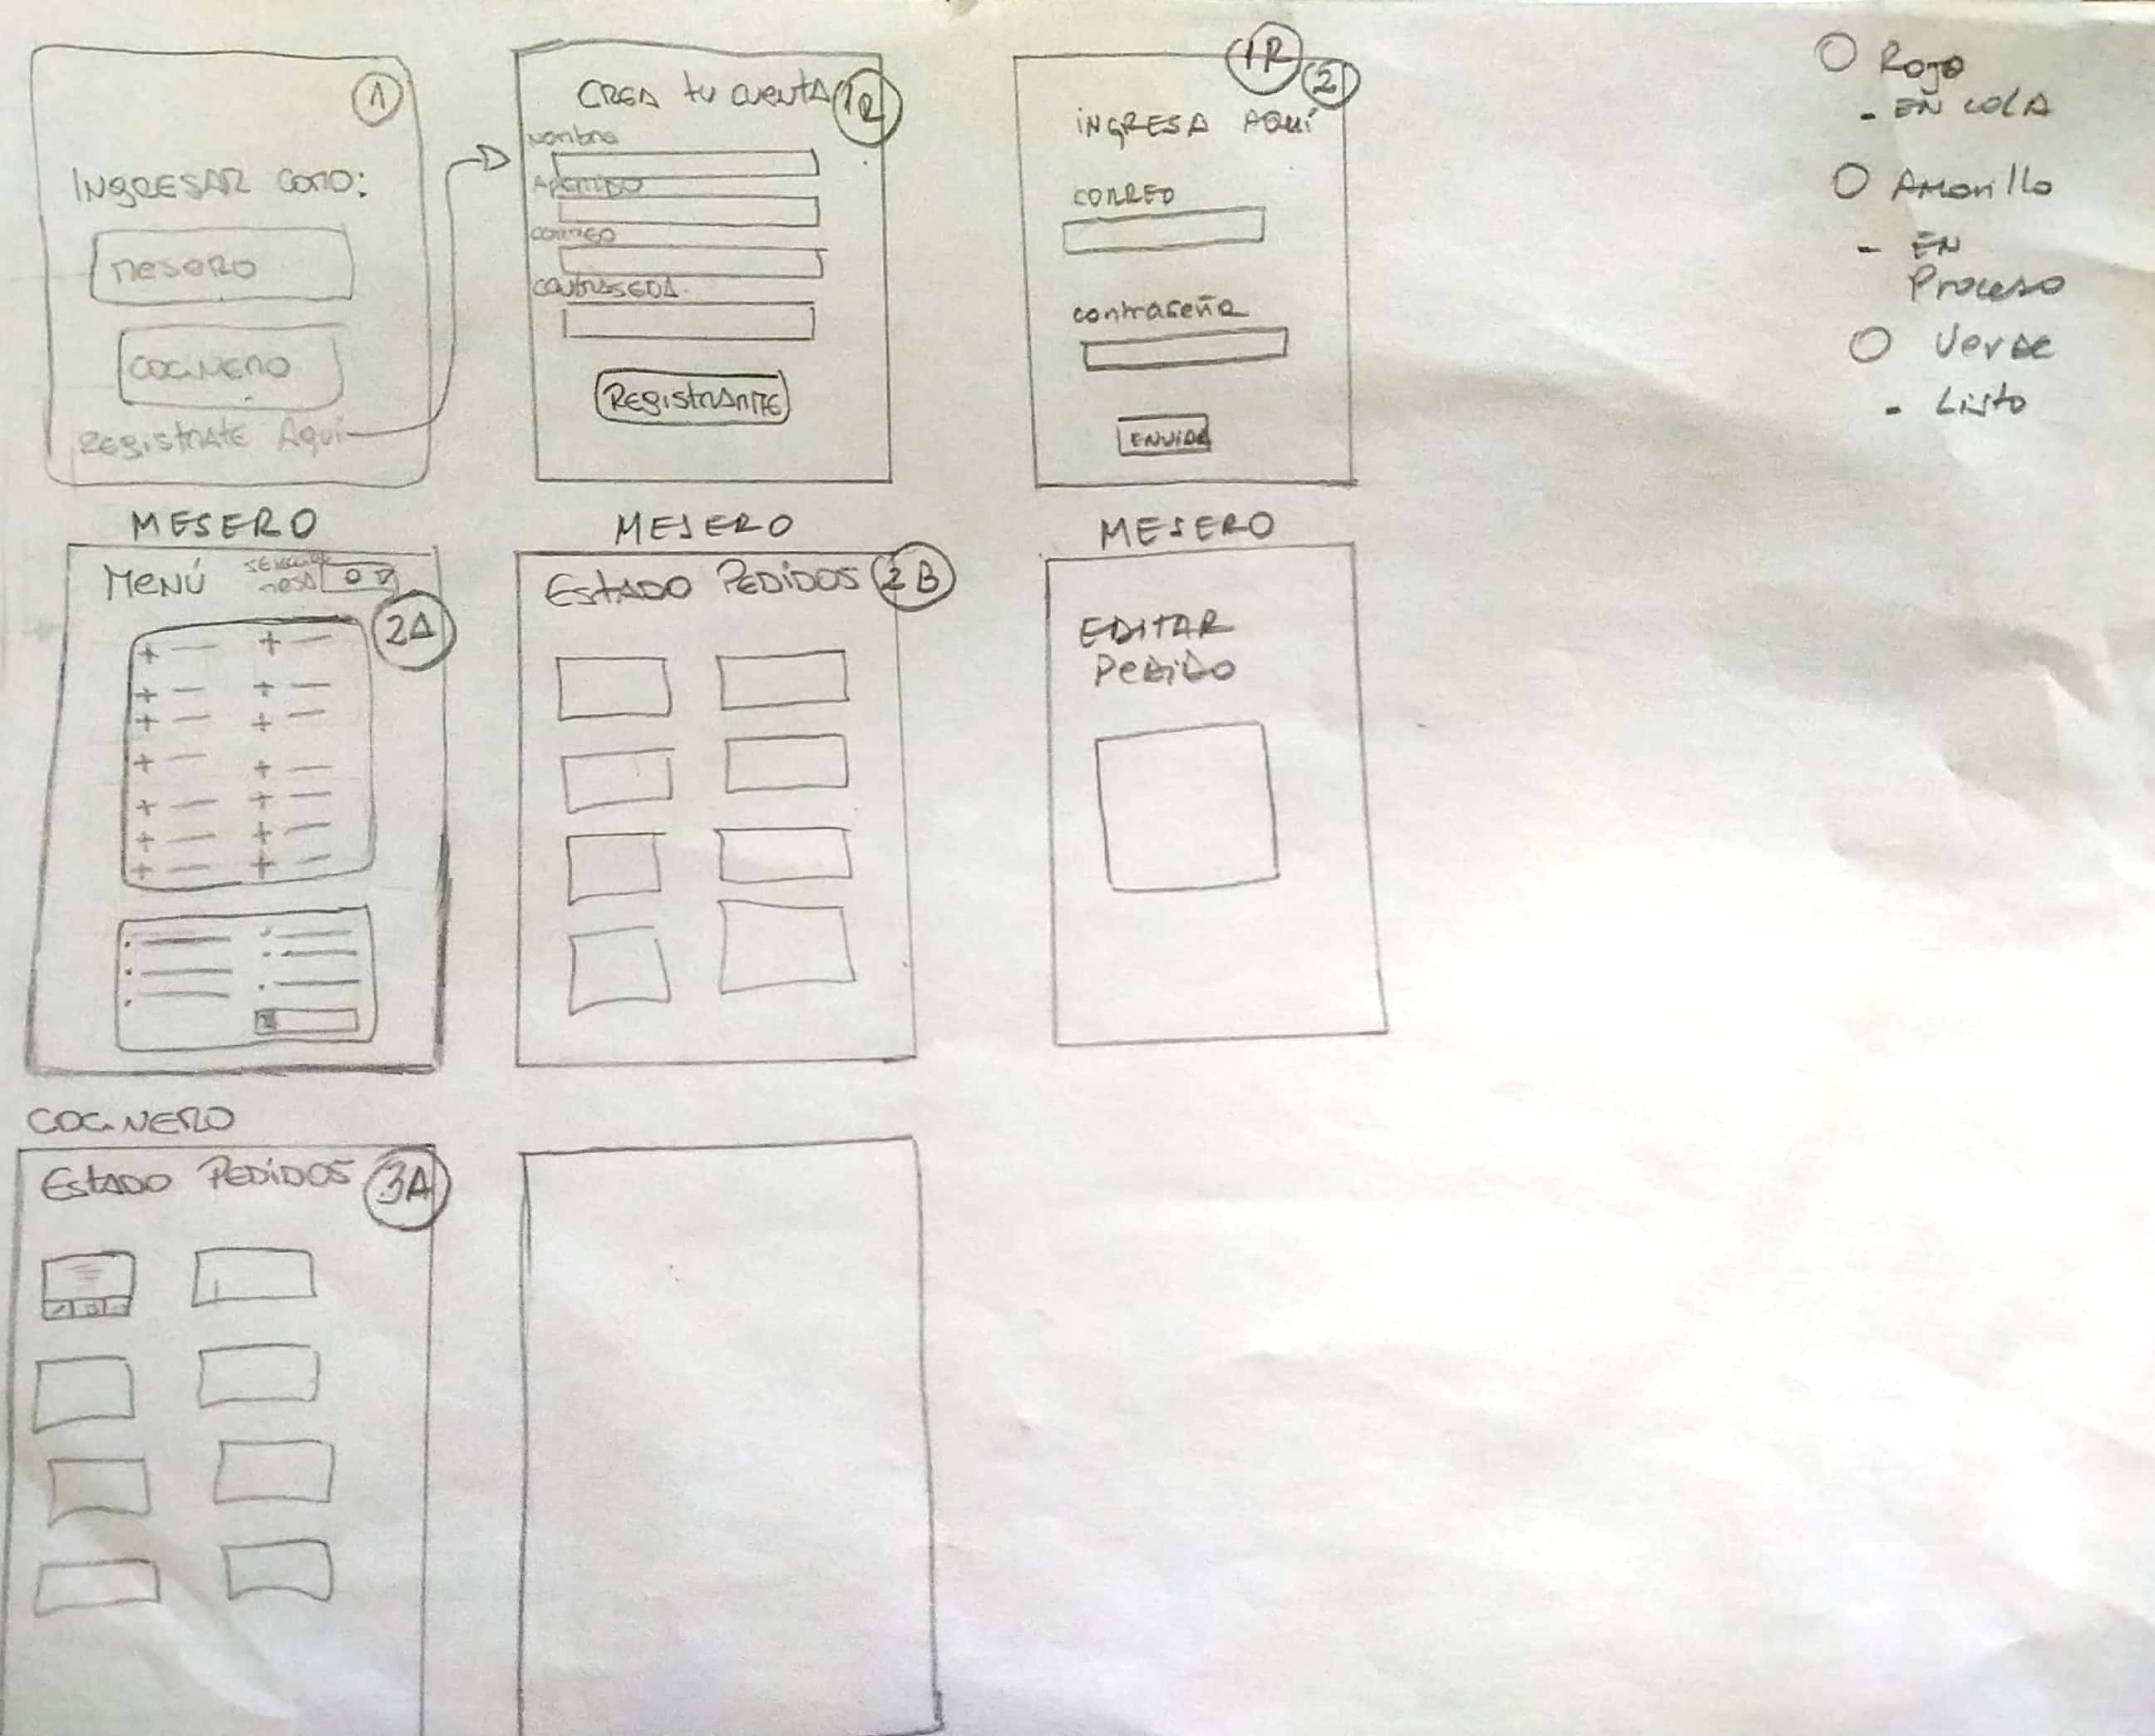 1
INGRESAR COMO:
MESERO
COCINERO
REGISTRATE AQUI
CREA tu cuentA 1R
Nombre
APELLIDO
CORREO
CONTRASEÑA
REGISTRARTE
1R 2
iNGRESA AQUÍ
CORREO
contraseña
ENVIAR
Rojo
- EN COLA
Amarillo
- EN
Proceso
Verde
- Listo
MESERO
MENÚ
mesa
2A
MESERO
EStADO PEDiDOS 2B
MESERO
EDITAR
PEDiDO
COCINERO
EStADO PEDiDOS 3A